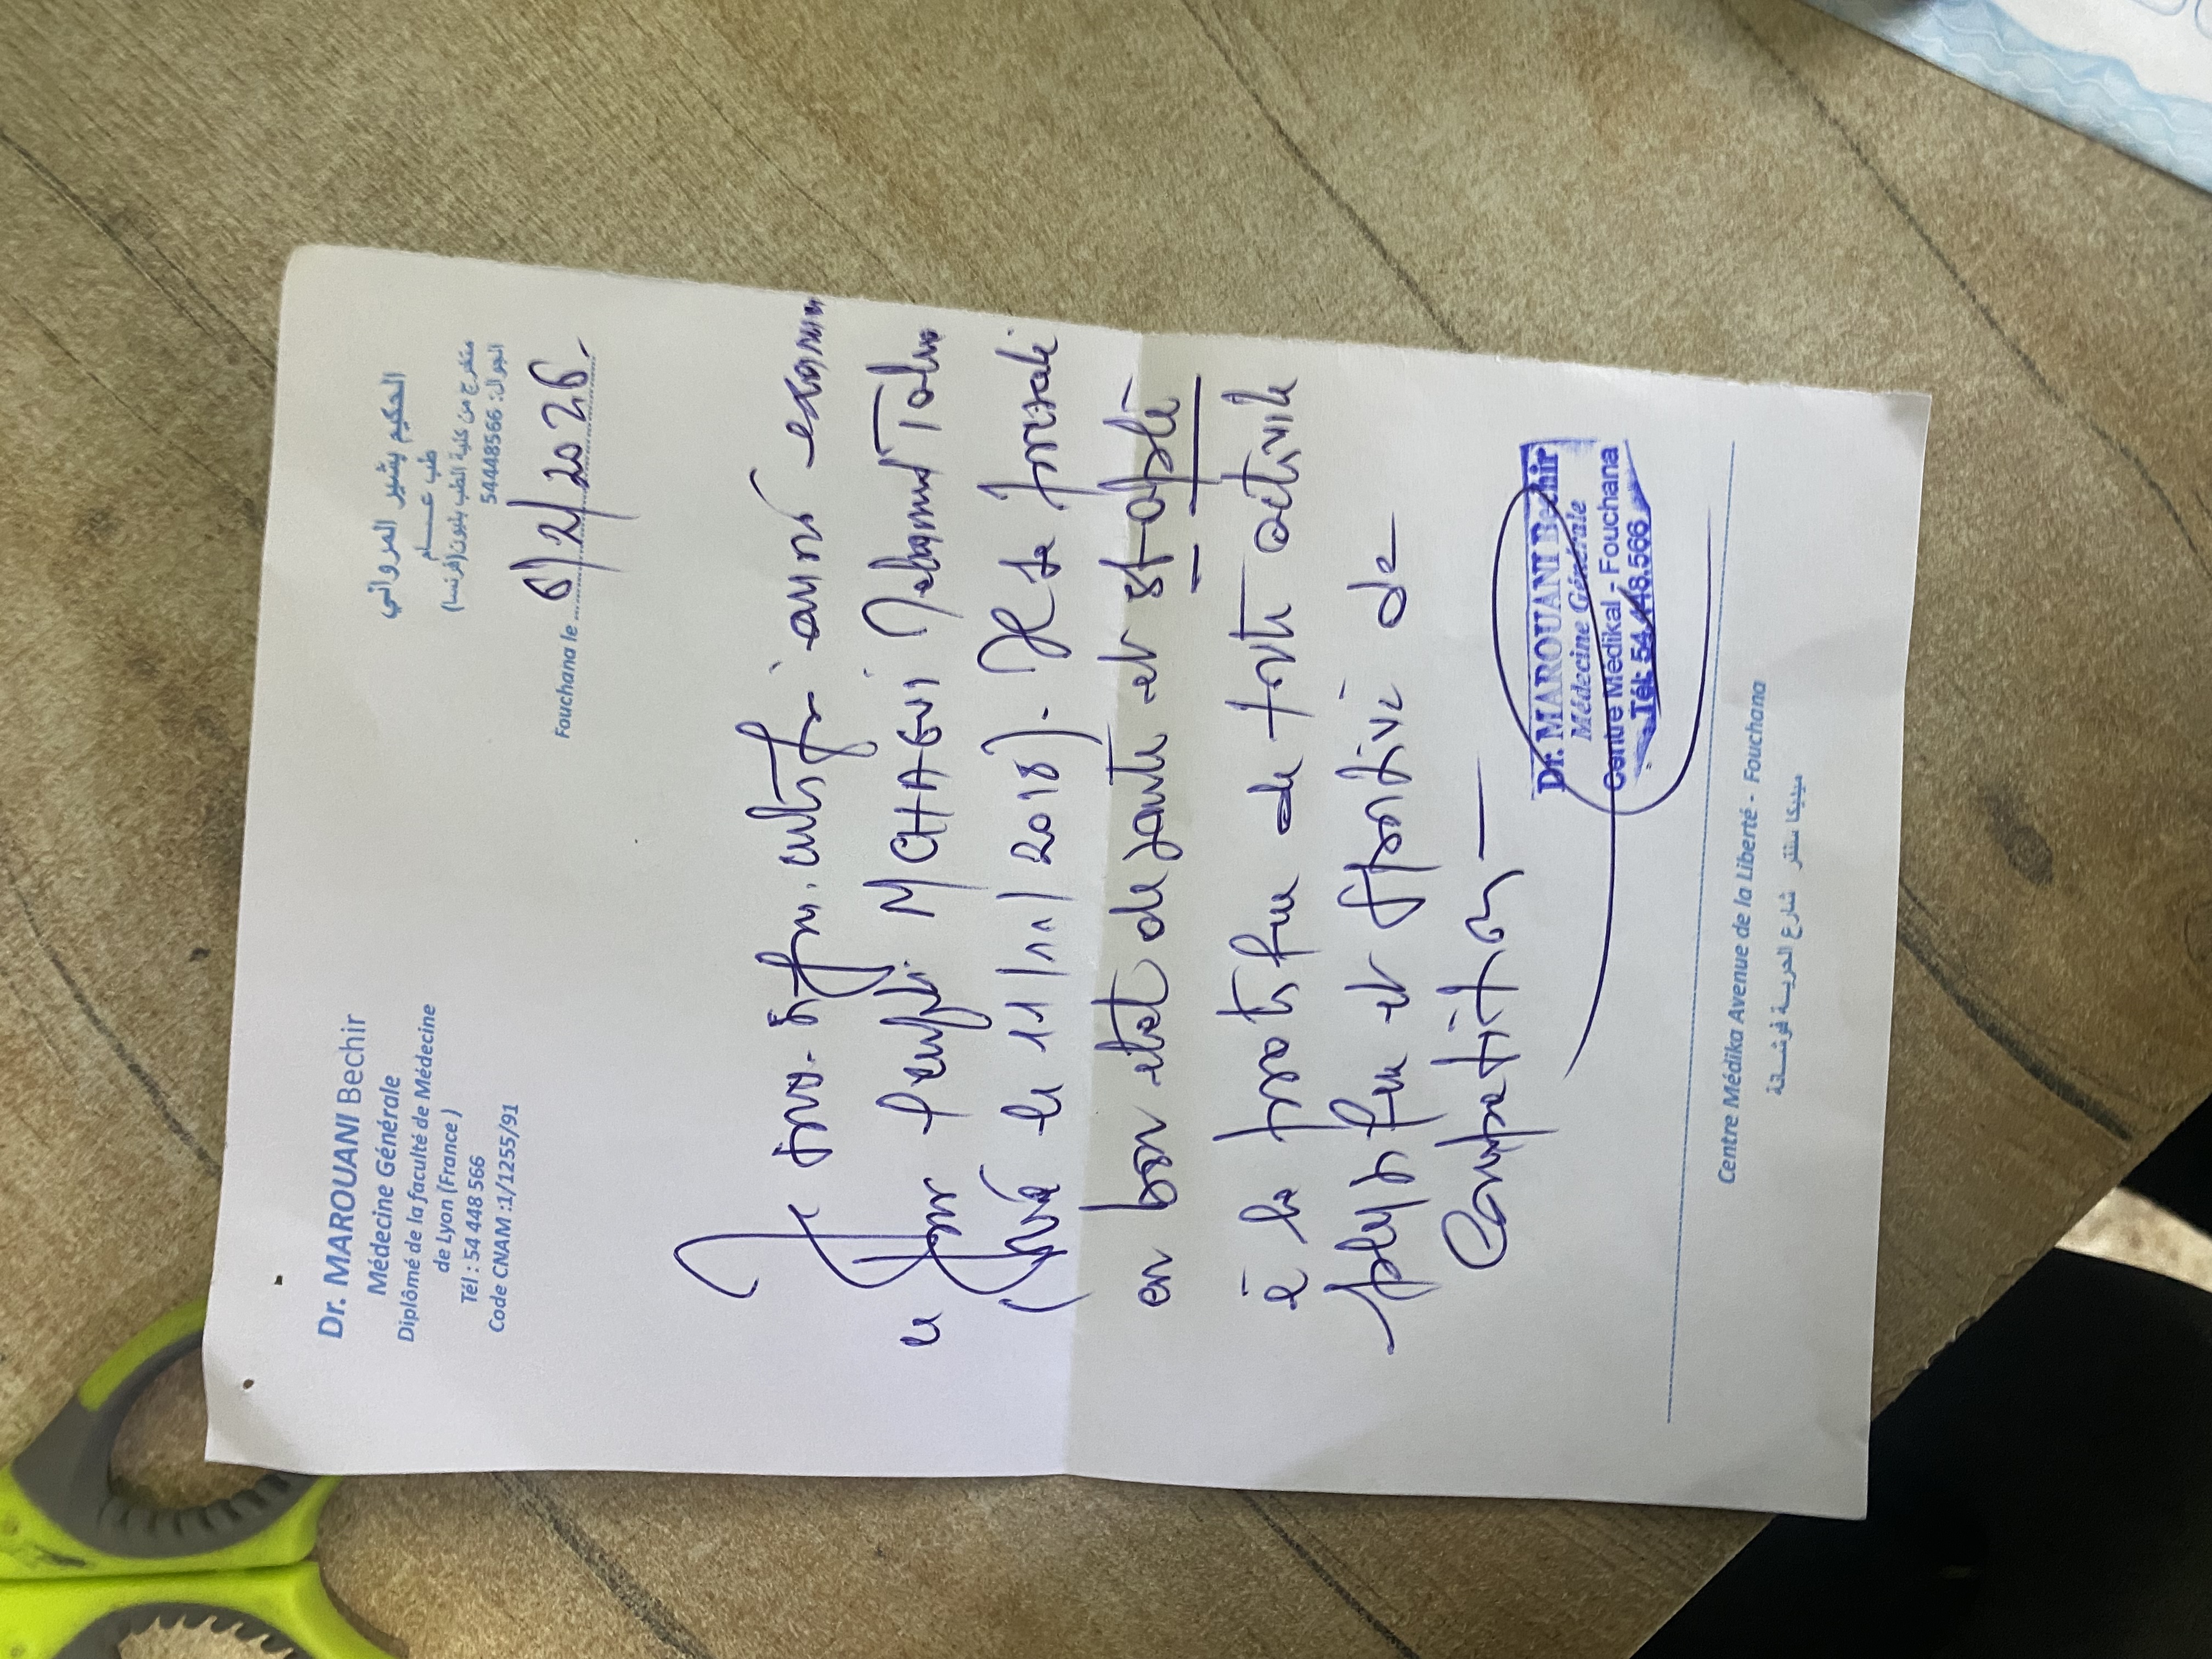 Dr. MAROUANI Bechir
Médecine Générale
Diplômé de la faculté de Médecine
de Lyon (France )
Tél : 54 448 566
Code CNAM :1/1255/91
الحكيم بشير المرواني
طب عــــام
متخرج من كلية الطب بليون(فرنسا)
الجوال: 54448566
Fouchana le 6/2/2026.
Je certifie avoir
ce jour MCHAGUI Mohamed
(Né le 11/11/2018). Il se
en bon état de santé et est apte
à la pratique de toute activité
physique et sportive de
Compétition
Dr. MAROUANI Bechir
Médecine Générale
Centre Médikal - Fouchana
Tél: 54.448.566
Centre Médika Avenue de la Liberté - Fouchana
ميديكا سنتر شارع الحرية فوشانة